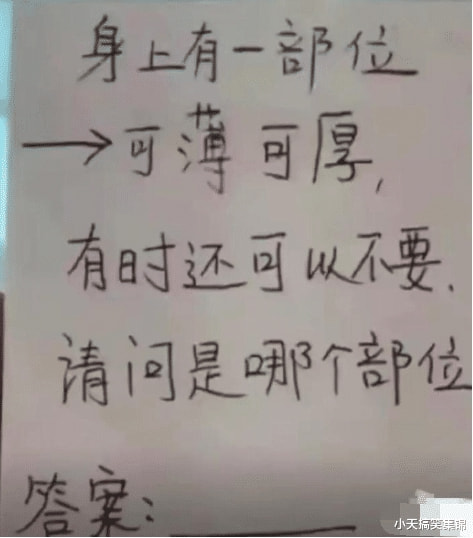 身上有一部位
→可薄可厚,
有时还可以不要.
请问是哪个部位
答案:
小天搞笑集锦